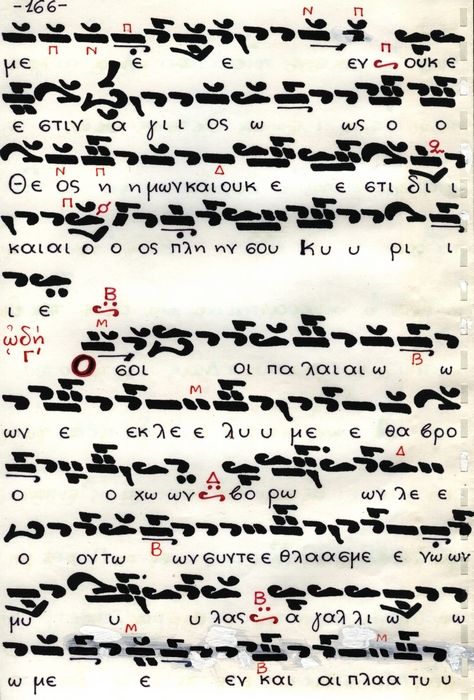 -166-
Ν Π
Π Ν Π
με ε ε εν Π ουκ ε
ε στιν α γι ι ος ω ως ο ο
Ν Π Δ
Θε ος η ημων και ουκ ε ε στι δι ι
Π
και αι ο ο ος πλη ην σου Κυ υ ρι ι
ι ε
Β
Μ
ᾠδὴ Γ΄
Ο σοι οι πα λαι αι ω ω
Β
Μ
ων ε εκλε ε λυ υ με ε θα βρο
Δ
ο ο χω ων Δ βο ρω ων λε ε
ο οντω ων συντε ε θλασμε ε νω ων
Β
μυ υ υ λας Β α γαλλι ω ω
Μ Μ
ω με ε εν και αι πλα τυ υ
Β